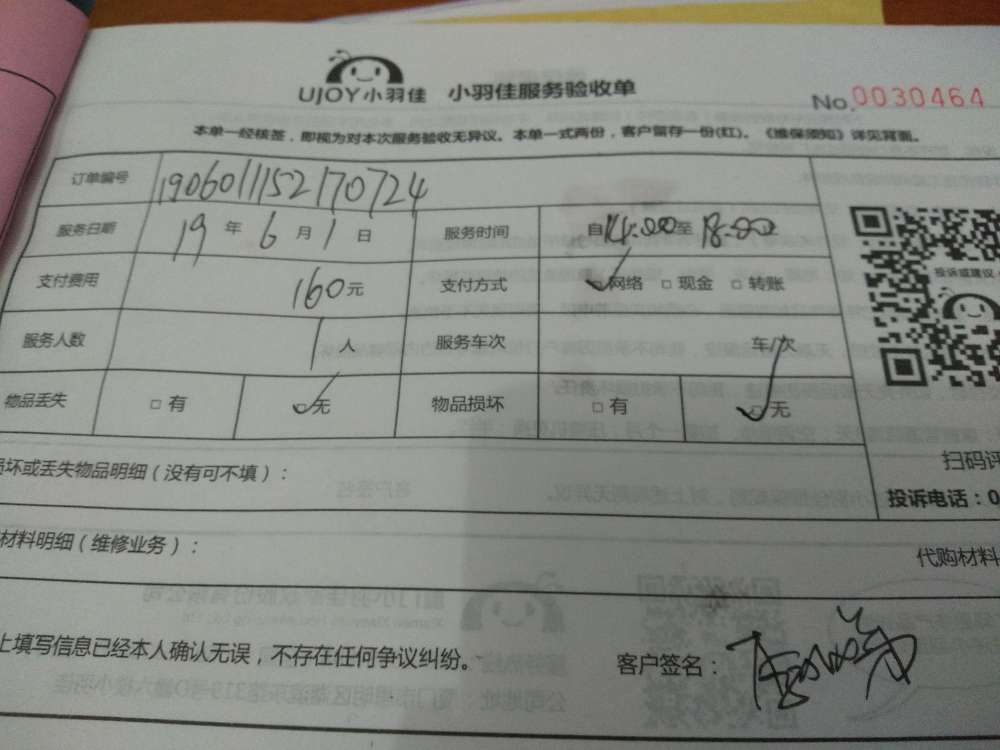 UJOY小羽佳 小羽佳服务验收单 No.0030464
本单一经核签,即视为对本次服务验收无异议。本单一式两份,客户留存一份(红)。《维保须知》详见背面。
订单编号 1906011152170724
服务日期 19年6月1日 服务时间 自14:00至18:00
支付费用 160元 支付方式 网络 □现金 □转账
服务人数 1人 服务车次 车/次
物品丢失 □有 □无 物品损坏 □有 □无
投诉或建议
损坏或丢失物品明细(没有可不填):
扫码评
投诉电话:0
材料明细(维修业务): 代购材料
上填写信息已经本人确认无误,不存在任何争议纠纷。 客户签名: